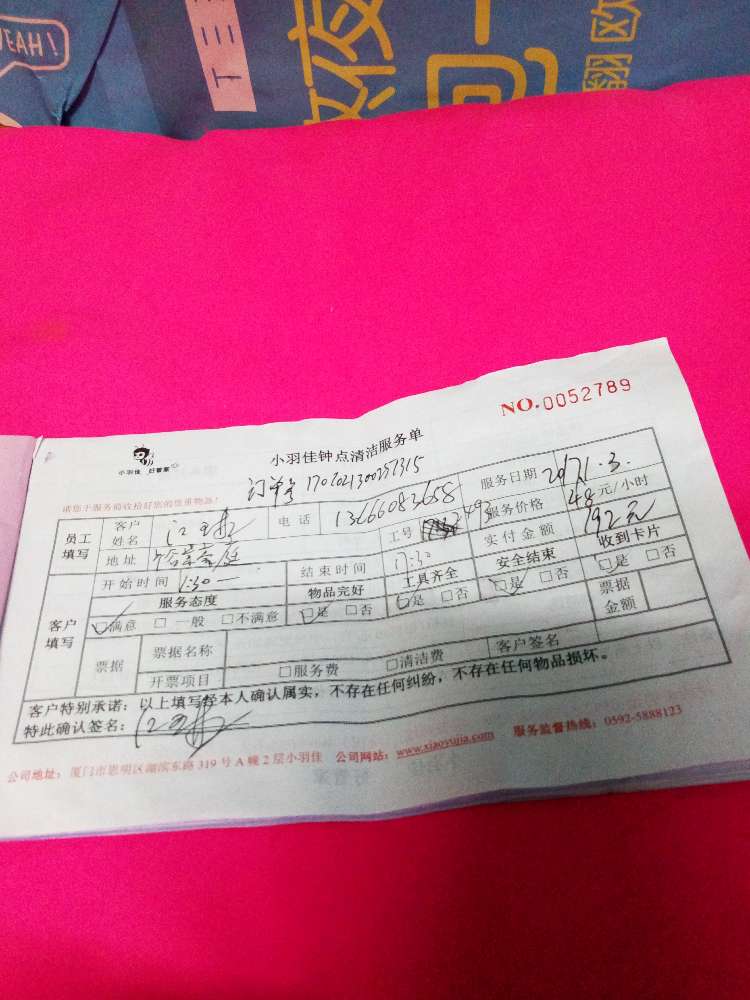 YEAH!
NO.0052789
小羽佳 好管家
小羽佳钟点清洁服务单
请您于服务前收拾好您的贵重物品!
订单号
服务日期
员工填写 客户姓名 电话 13666083658 工号 服务价格 48元/小时
地址 结束时间 17:30 实付金额 192元
开始时间 1:30
服务态度 物品完好 工具齐全 安全结束 收到卡片
客户填写 □满意 □一般 □不满意 □是 □否 □是 □否 □是 □否 □是 □否
票据 票据名称 票据金额
开票项目 □服务费 □清洁费 客户签名
客户特别承诺:以上填写经本人确认属实,不存在任何纠纷,不存在任何物品损坏。
特此确认签名:
公司地址:厦门市思明区湖滨东路319号A幢2层小羽佳 公司网站:www.xiaoyujia.com 服务监督热线:0592-5888123